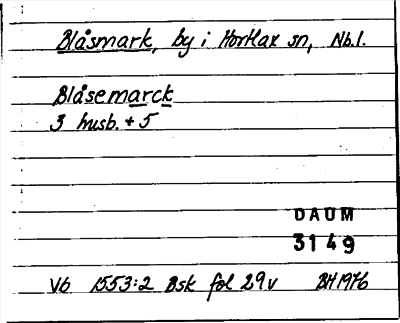 Blåsmark, by i Hortlax sn, Nb.l.
Blåsemarck
3 husb. + 5
DAUM
3149
Vb 1553:2 Bsk fol 29v BH 1976